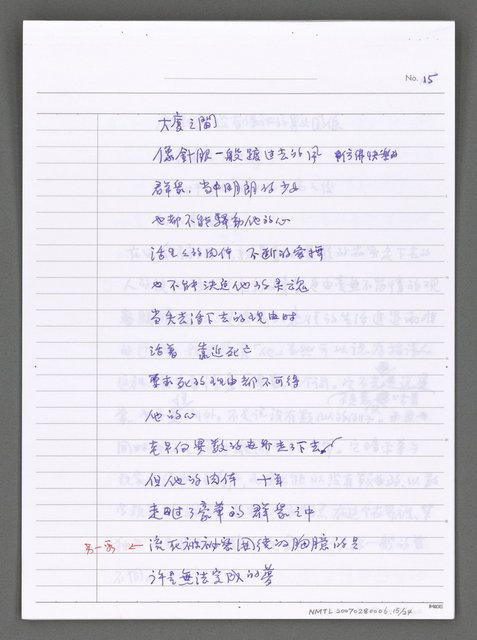 No. 15
大廈之間
像針眼一般踱過去的風 彷彿快樂的
群眾,當中明朗的少女
也都不能騷動他的心
活生生的肉体 不斷的愛撫
也不能決定他的灵魂
當失去活下去的理由時
活著 靠近死亡
要求死的理由都不可得
他的心
老早向算數的世界走下去
但他的肉体 十年
走過了豪華的群眾之中
第一寫 ← 流在被被眾圍繞的胸膛的是
許是無法完成的夢
NMTL20070280006.15/24